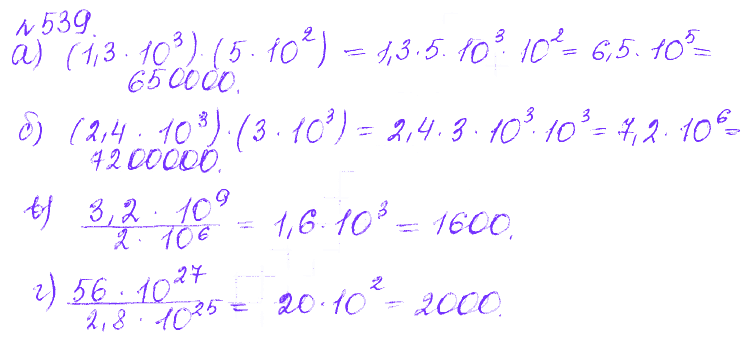 №539.
а) (1,3 · 10³) · (5 · 10²) = 1,3 · 5 · 10³ · 10² = 6,5 · 10⁵ =
650000.
б) (2,4 · 10³) · (3 · 10³) = 2,4 · 3 · 10³ · 10³ = 7,2 · 10⁶ =
7200000.
в) 3,2 · 10⁹ / 2 · 10⁶ = 1,6 · 10³ = 1600.
г) 56 · 10²⁷ / 2,8 · 10²⁵ = 20 · 10² = 2000.